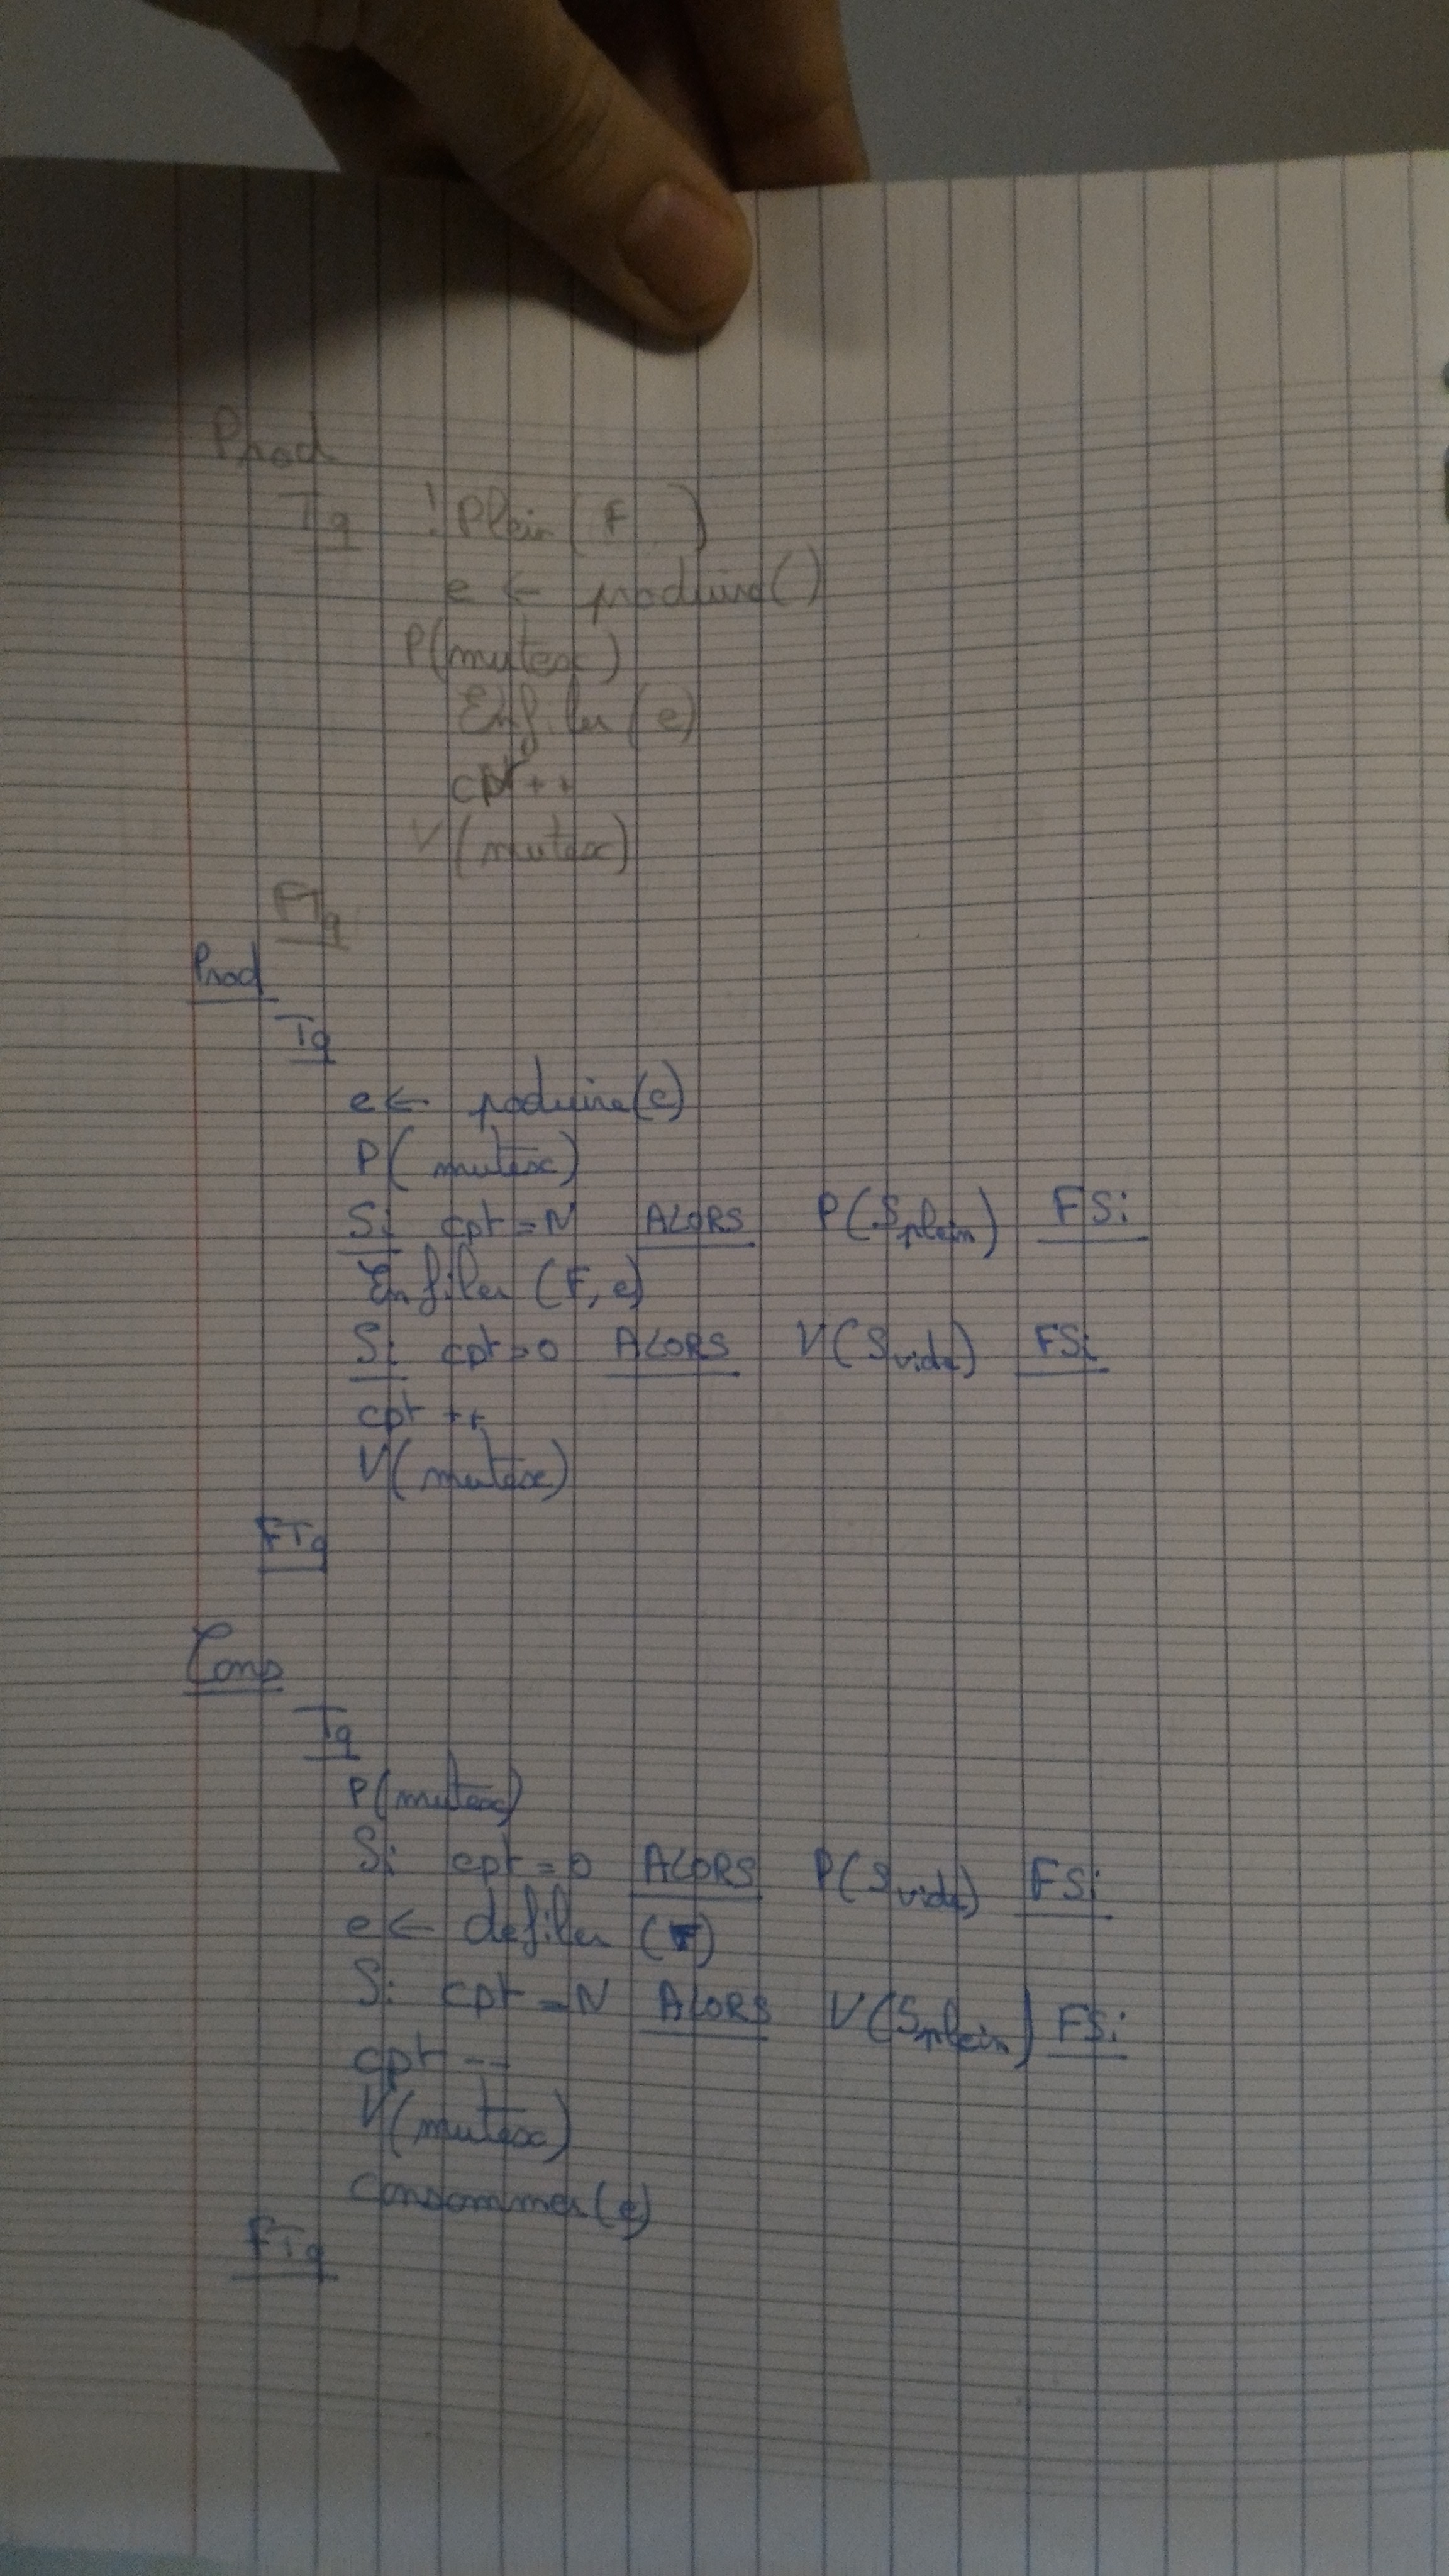 Prod
Tq !Plein( F )
e ← produire()
P(mutex)
Enfiler(e)
cpt++
V(mutex)
FTq
Prod
Tq
e ← produire(e)
P(mutex)
Si cpt = N ALORS P(Splein) FSi
Enfiler (F, e)
Si cpt = 0 ALORS V(Svide) FSi
cpt ++
V(mutex)
FTq
Cons
Tq
P(mutex)
Si cpt = 0 ALORS P(Svide) FSi
e ← defiler (F)
Si cpt = N ALORS V(Splein) FSi
cpt --
V(mutex)
consommer(e)
FTq